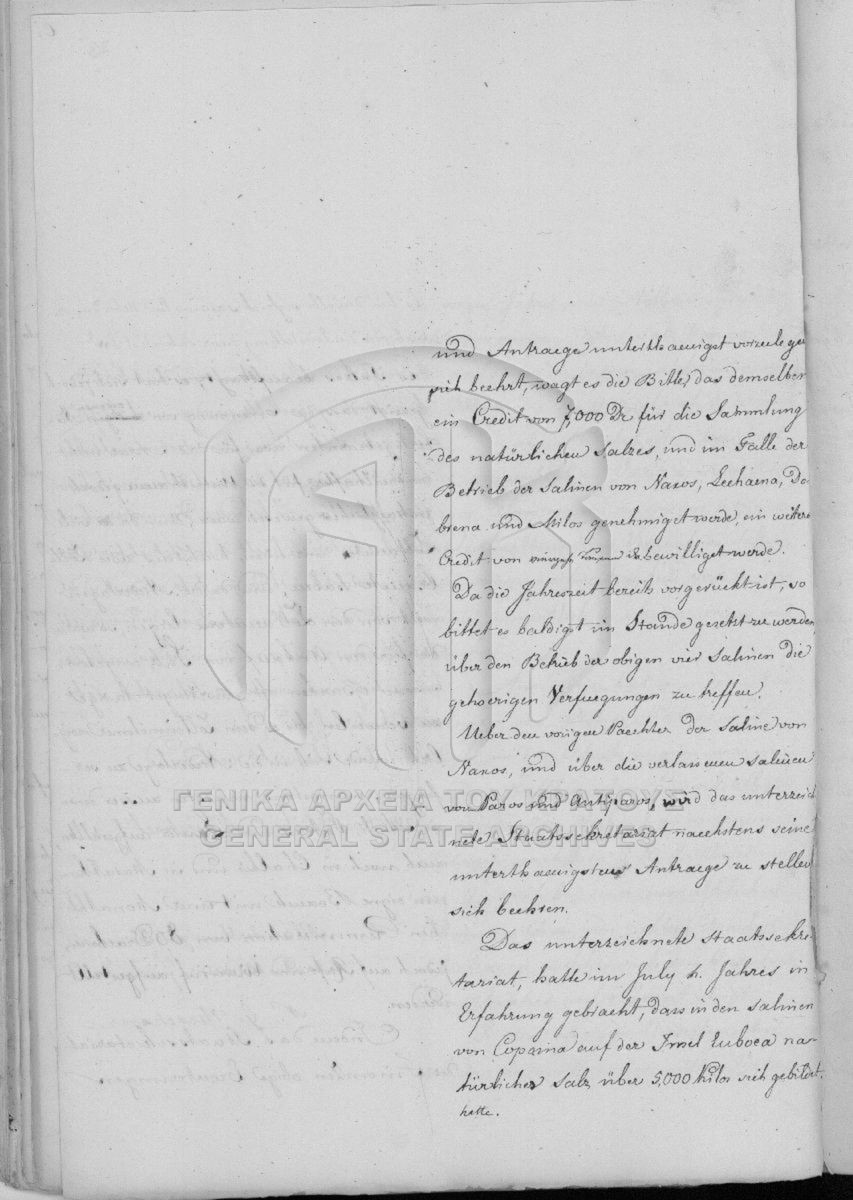 und Antraege unterthaenigst vorzulegen
sich beehrt, wagt es die Bitte, das demselben
ein Credit von 7,000 Dr für die Sammlung
des natürlichen Salzes, und im Falle der
Betrieb der Salinen von Naxos, Lechaena, Do-
brena und Milos genehmiget werde, ein weiterer
Credit von bewilliget werde.
Da die Jahreszeit bereits vorgerückt ist, so
bittet es baldigst im Stande gesetzt zu werden,
über den Betrieb der obigen vier Salinen die
gehoerigen Verfuegungen zu treffen.
Ueber den vorigen Paechter der Saline von
Naxos, und über die verlassenen Salinen
von Paros und Antiparos, wird das unterzeich
nete Staatssekretariat naechstens seine
unterthaenigsten Antraege zu stellen
sich beehren.
ΓΕΝΙΚΑ ΑΡΧΕΙΑ ΤΟΥ ΚΡΑΤΟΥΣ
GENERAL STATE ARCHIVES
Das unterzeichnete Staatssekre-
tariat, hatte im July h. Jahres in
Erfahrung gebracht, dass in den Salinen
von Copaina auf der Insel Euboea na-
türliches Salz über 5,000 Kilos sich gebildet
hatte.